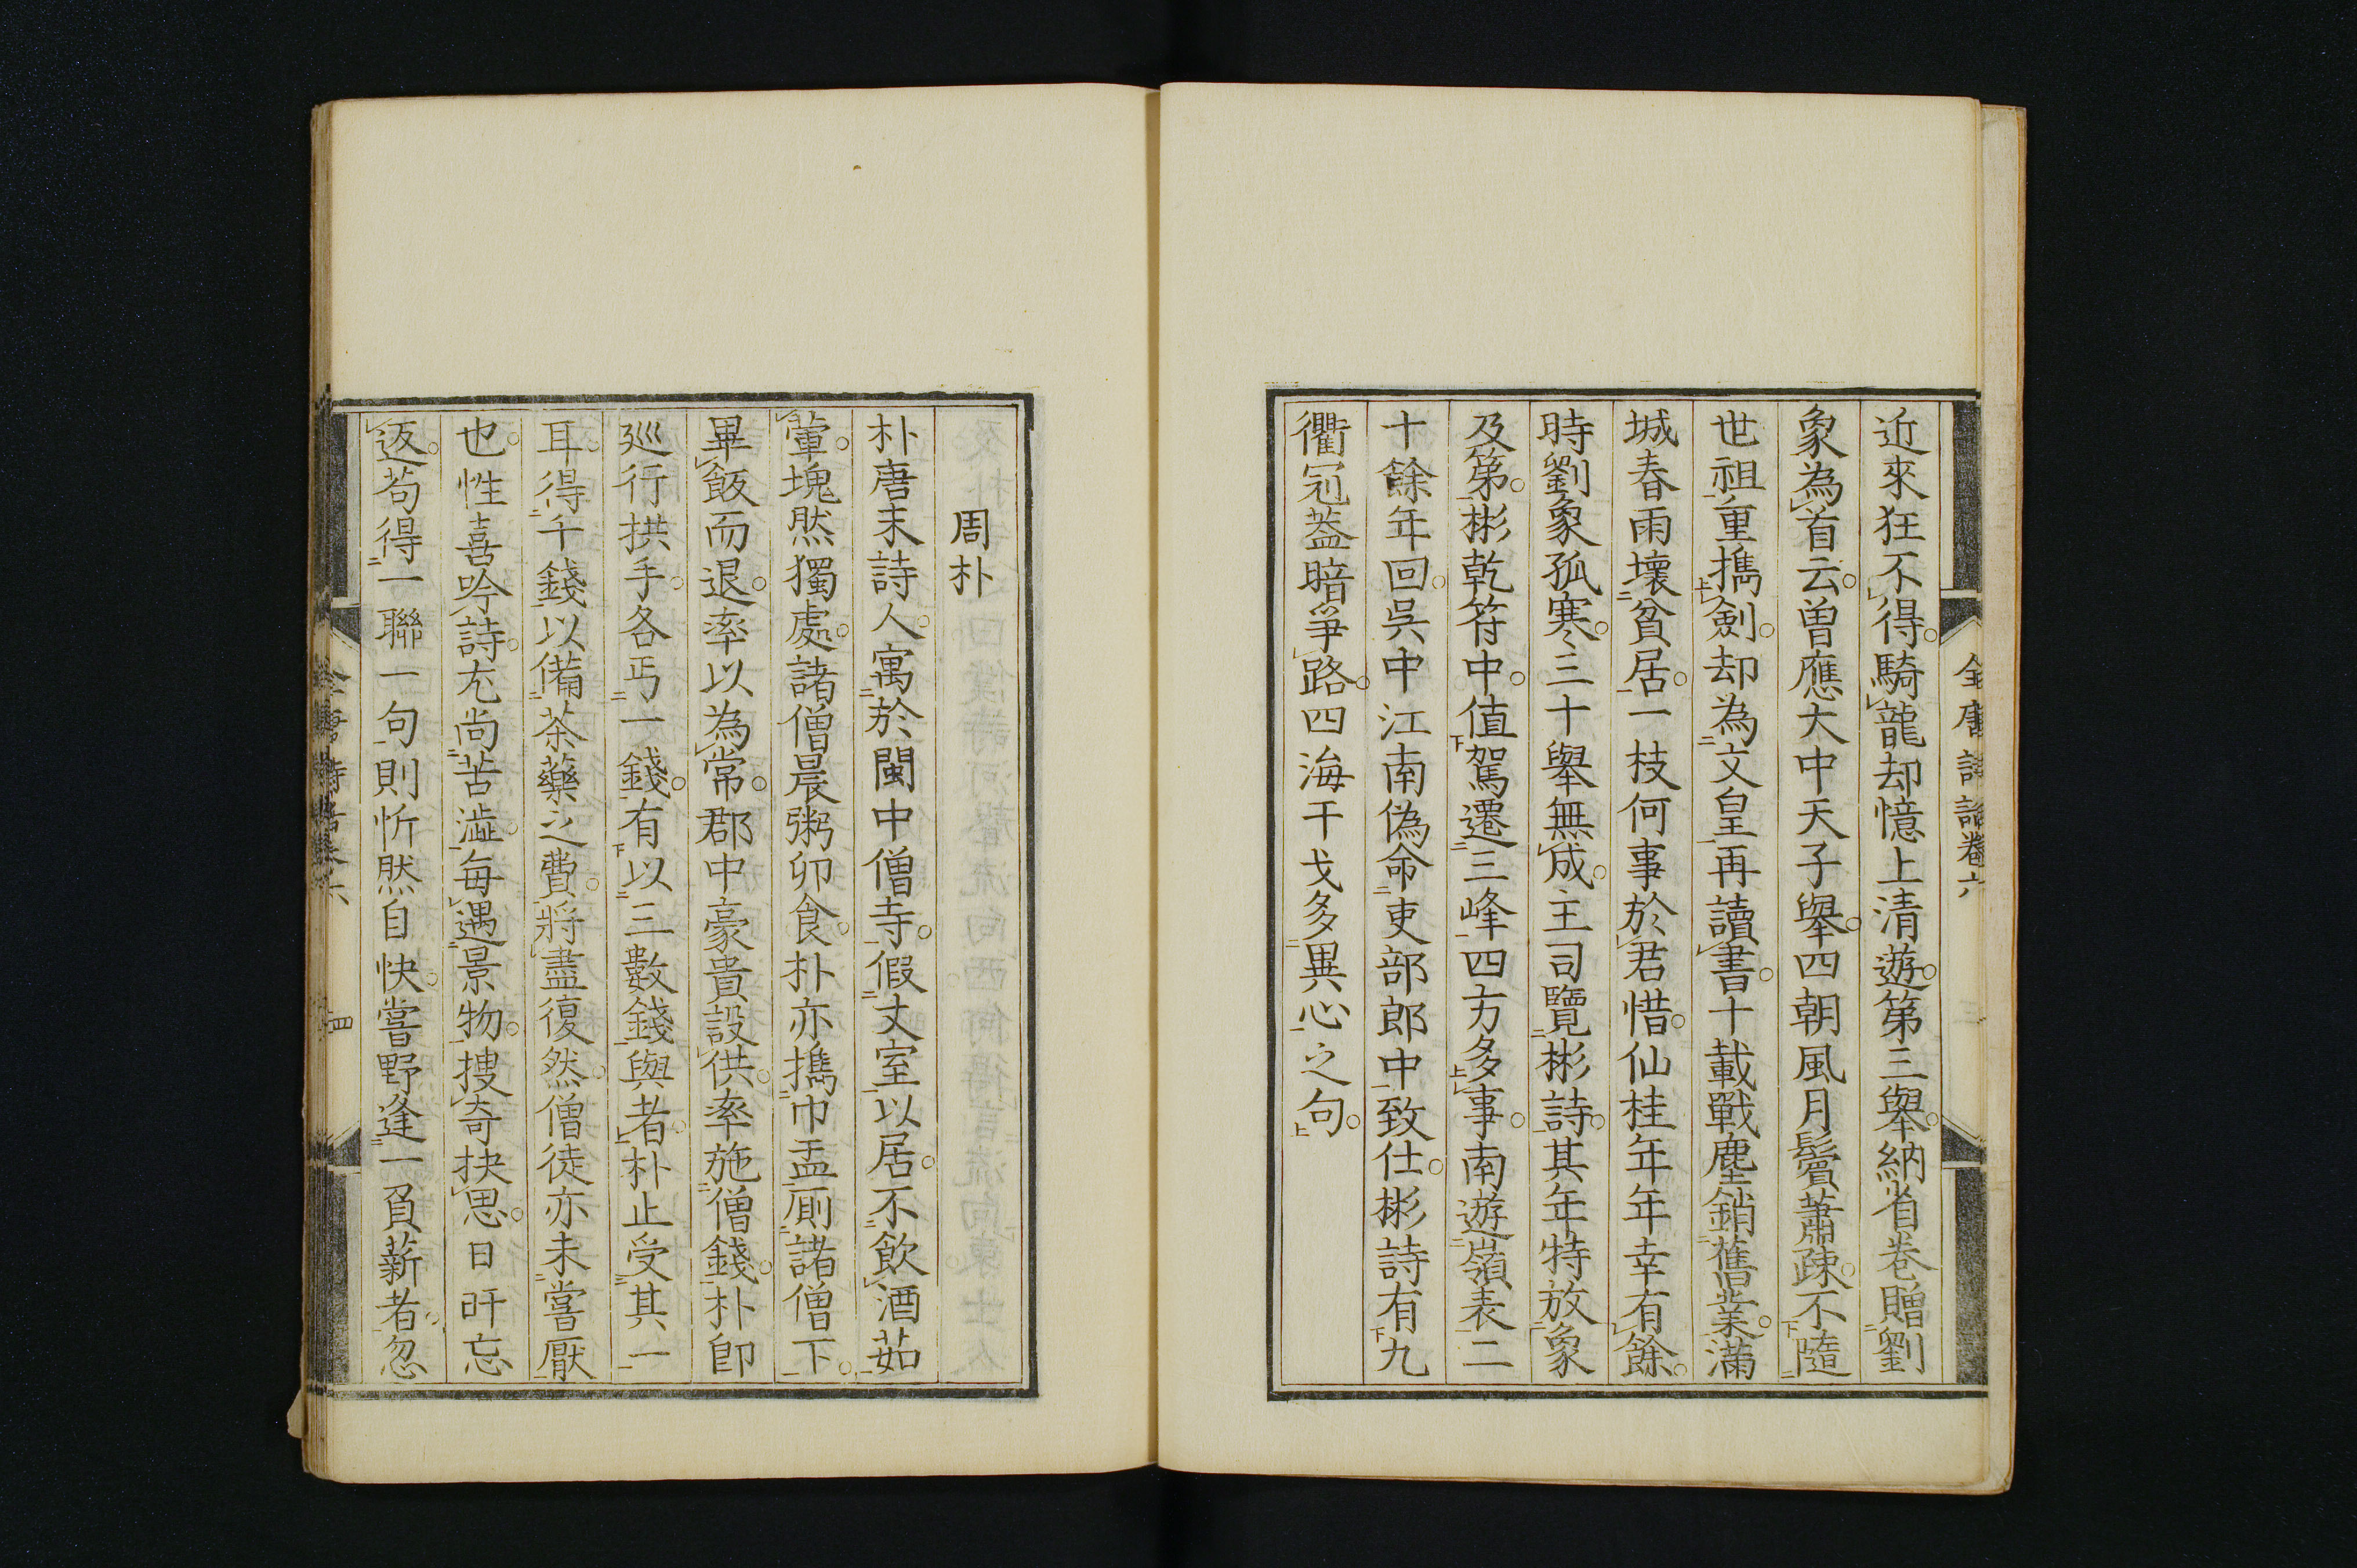 全唐詩話卷六
近來狂不得騎龍却憶上清遊第三舉納省卷贈劉
象為首云曽應大中天子舉四朝風月鬢蕭疎不隨
世祖重攜劍却為文皇再讀書十載戰塵銷舊業滿
城春雨壞貧居一枝何事於君惜仙桂年年幸有餘
時劉象孤寒三十舉無成主司覽彬詩其年特放象
及第彬乾符中值駕遷三峰四方多事南遊嶺表二
十餘年回吳中江南偽命吏部郎中致仕彬詩有九
衢冠蓋暗爭路四海干戈多異心之句
周朴
朴唐末詩人寓於閩中僧寺假丈室以居不飲酒茹
葷塊然獨處諸僧晨粥卯食朴亦攜巾盂厠諸僧下
畢飯而退率以為常郡中豪貴設供率施僧錢朴卽
廵行拱手各丐一錢有以三數錢與者朴止受其一
耳得千錢以備茶藥之費將盡復然僧徒亦未嘗厭
也性喜吟詩尤尚苦澁每遇景物搜奇抉思日旰忘
返苟得一聯一句則忻然自快嘗野逢一負薪者忽
四